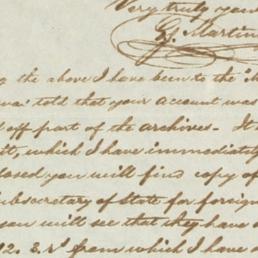 Very truly your
G. Martin
ng the above I have been to the "M
wa" told that your account was
d off part of the archives. It
it, which I have immediately
osed you will find copy of
ubsecretary of State for foreign
ou will see that they have
2. 3. rs from which I have